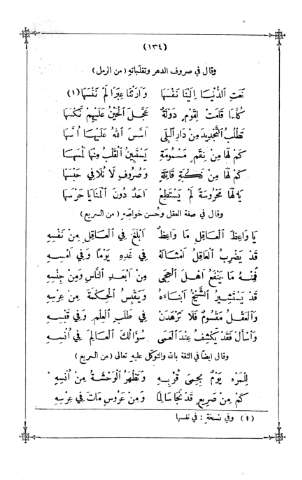 (١٣٤)
وقال في صروف الدهر وتقلباته (من الرمل)
نعت الدنيا الينا نفسها وارتنا عبرا لم ننسها (١)
كلما قامت لقوم دولة عجل الحين عليهم نكسها
تطلب التجديد من دار البلى اسس الله عليها اسها
كم لها من نقم مسمومة يستبين القلب منها لمسها
كم لها من نكبة قاتلة وصروف لا تلافي حبسها
يا لها محروسة لم يستطع احد دون المنايا حرسها
وقال في صفة العقل وحسن خواصه (من السريع)
يا واعظ العاقل ما واعظ ابلغ في العاقل من نفسه
قد يضرب العاقل امثاله في غده يوما وفي امسه
فيه ما ينفع اهل الحجى من ابعد الناس ومن جنسه
قد يستشير الشيخ ابناءه ويقبس الحكمة من عرسه
والعقل مقسوم فلا تزهدن في طلب العلم وفي قبسه
واسأل فقد يكشف عند العمى سؤالك العالم في انسه
وقال ايضا في الثقة بالله والتوكل عليه تعالى (من السريع)
للمرء يوم يحمى قربه وتظهر الوحشة من انسه
كم من صريع قد نجا سالما ومن عروس مات في عرسه
(١) وفي نسخة: في نفسها